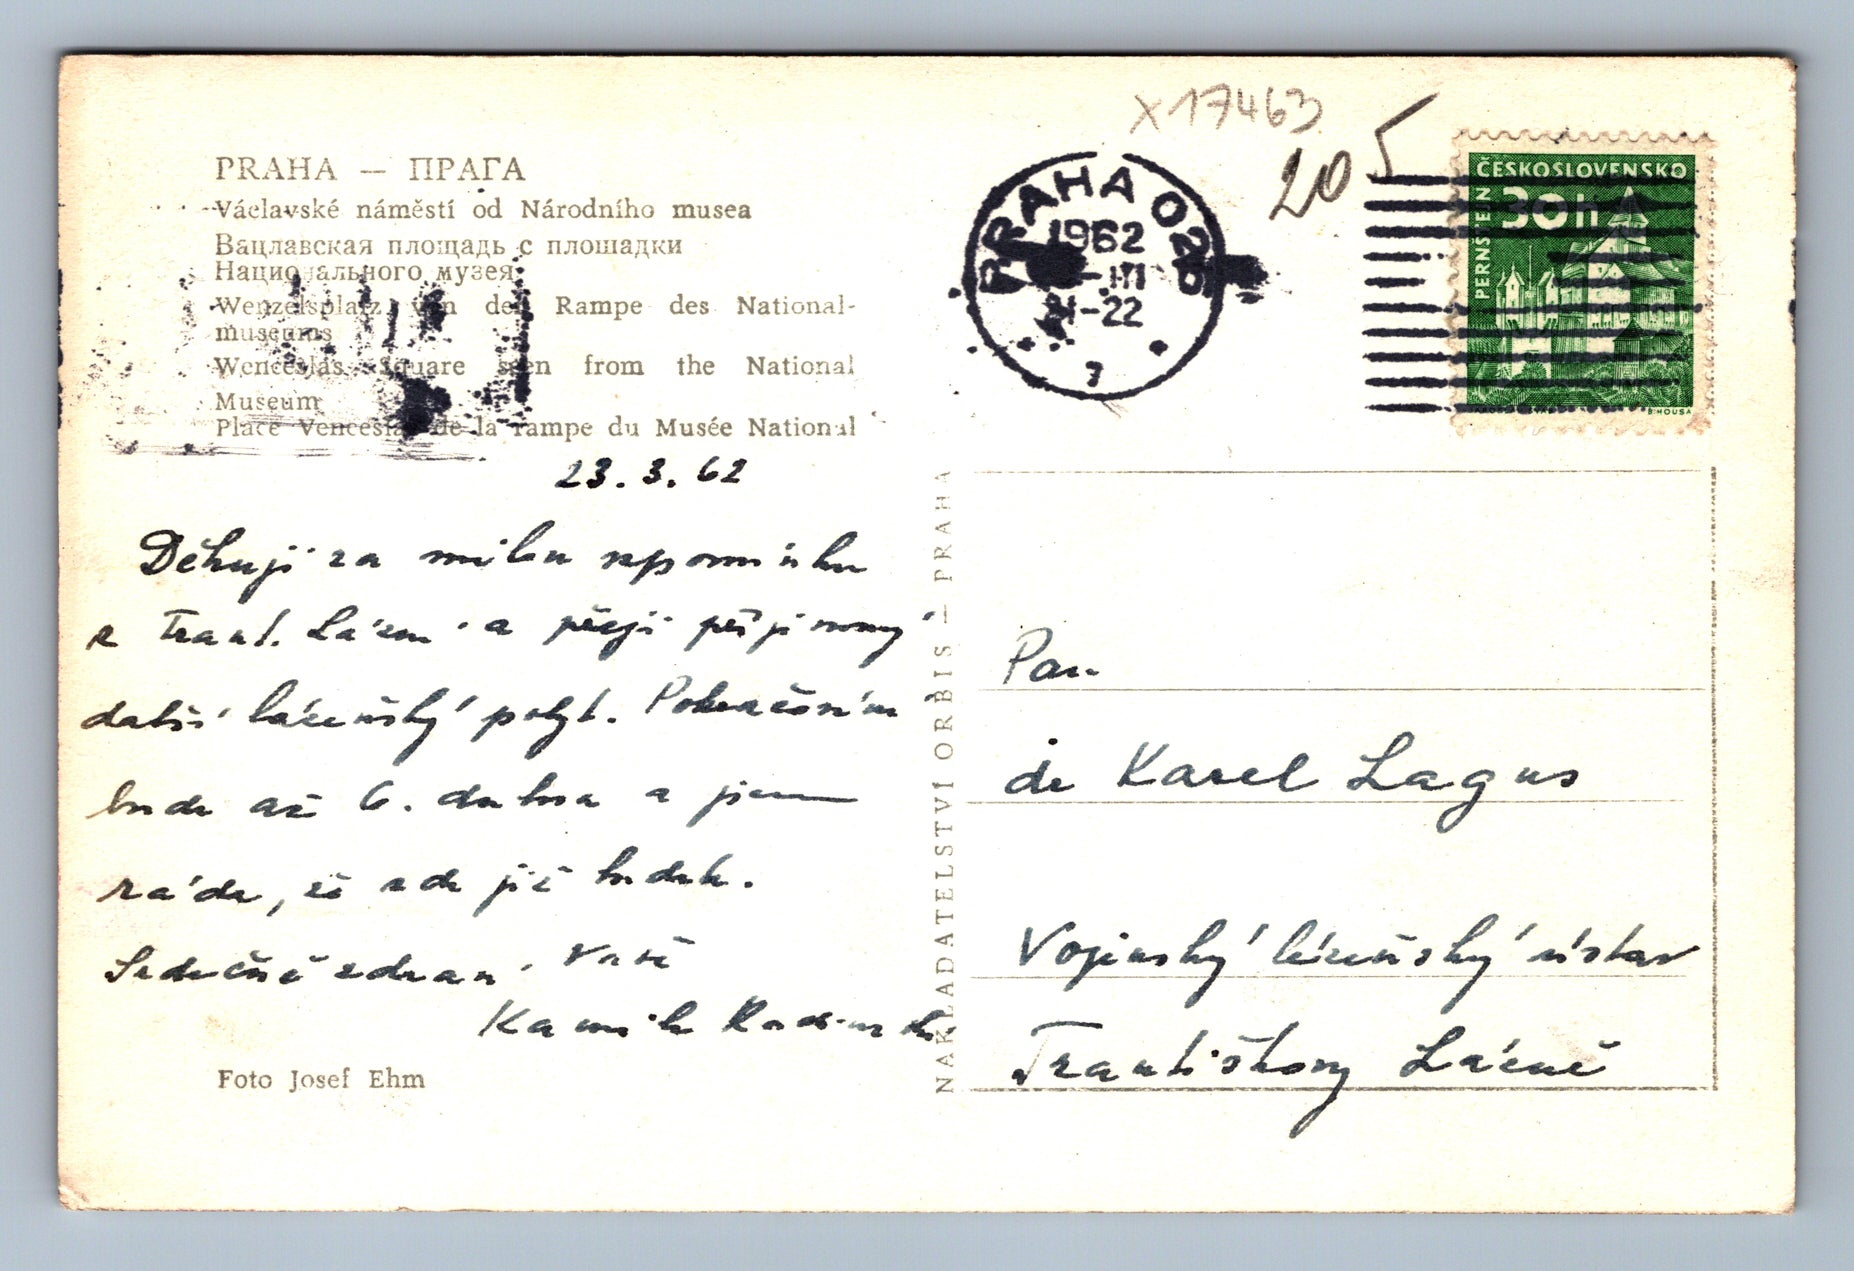 PRAHA — ПРАГА
Václavské náměstí od Národního musea
Вацлавская площадь с площадки
Национального музея
Wenzelsplatz von der Rampe des National-
museums
Wenceslas Square seen from the National
Museum
Place Venceslas de la rampe du Musée National
23. 3. 62
Děkuji za milou vzpomínku
z Frant. Lázní a přeji příjemný
další lázeňský pobyt.
bude až 6. dubna a jsem
ráda, že zde již budete.
Srdečně zdraví Vaše
Kamila
Foto Josef Ehm
NAKLADATELSTVÍ ORBIS — PRAHA
X17463
20
5
PRAHA 025
1962
III
21-22
7
ČESKOSLOVENSKO
30h
PERNŠTEJN
B. HOUSA
Pan
dr Karel Lagus
Vojenský lázeňský ústav
Františkovy Lázně